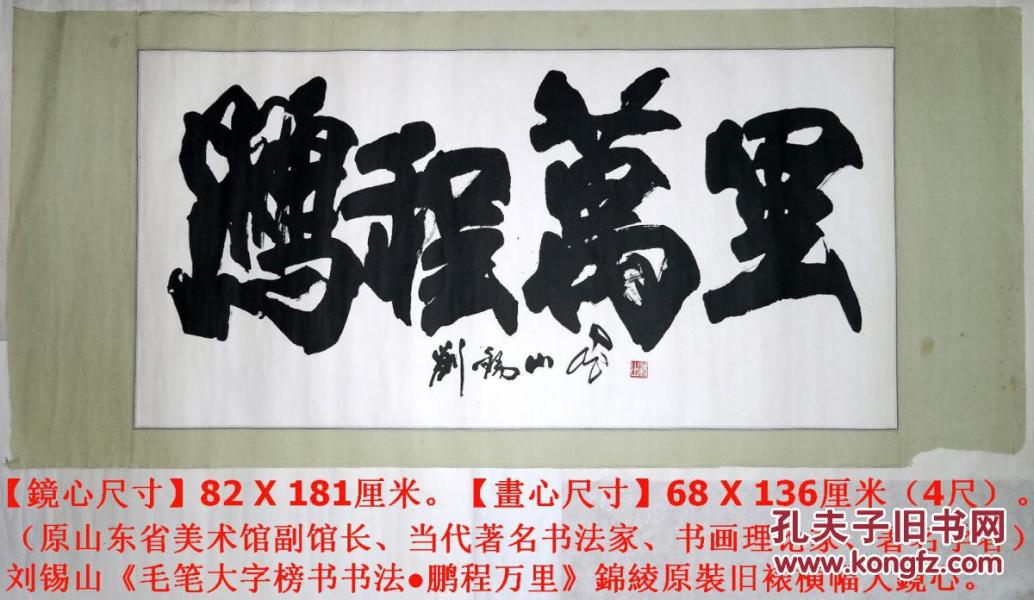 鵬程萬里
劉錫山書
【鏡心尺寸】82 X 181厘米。【畫心尺寸】68 X 136厘米（4尺）。
（原山东省美术馆副馆长、当代著名书法家、书画理论家、著名学者）
刘锡山《毛笔大字榜书书法●鹏程万里》錦綾原裝旧裱横幅大鏡心。
孔夫子旧书网
www.kongfz.com